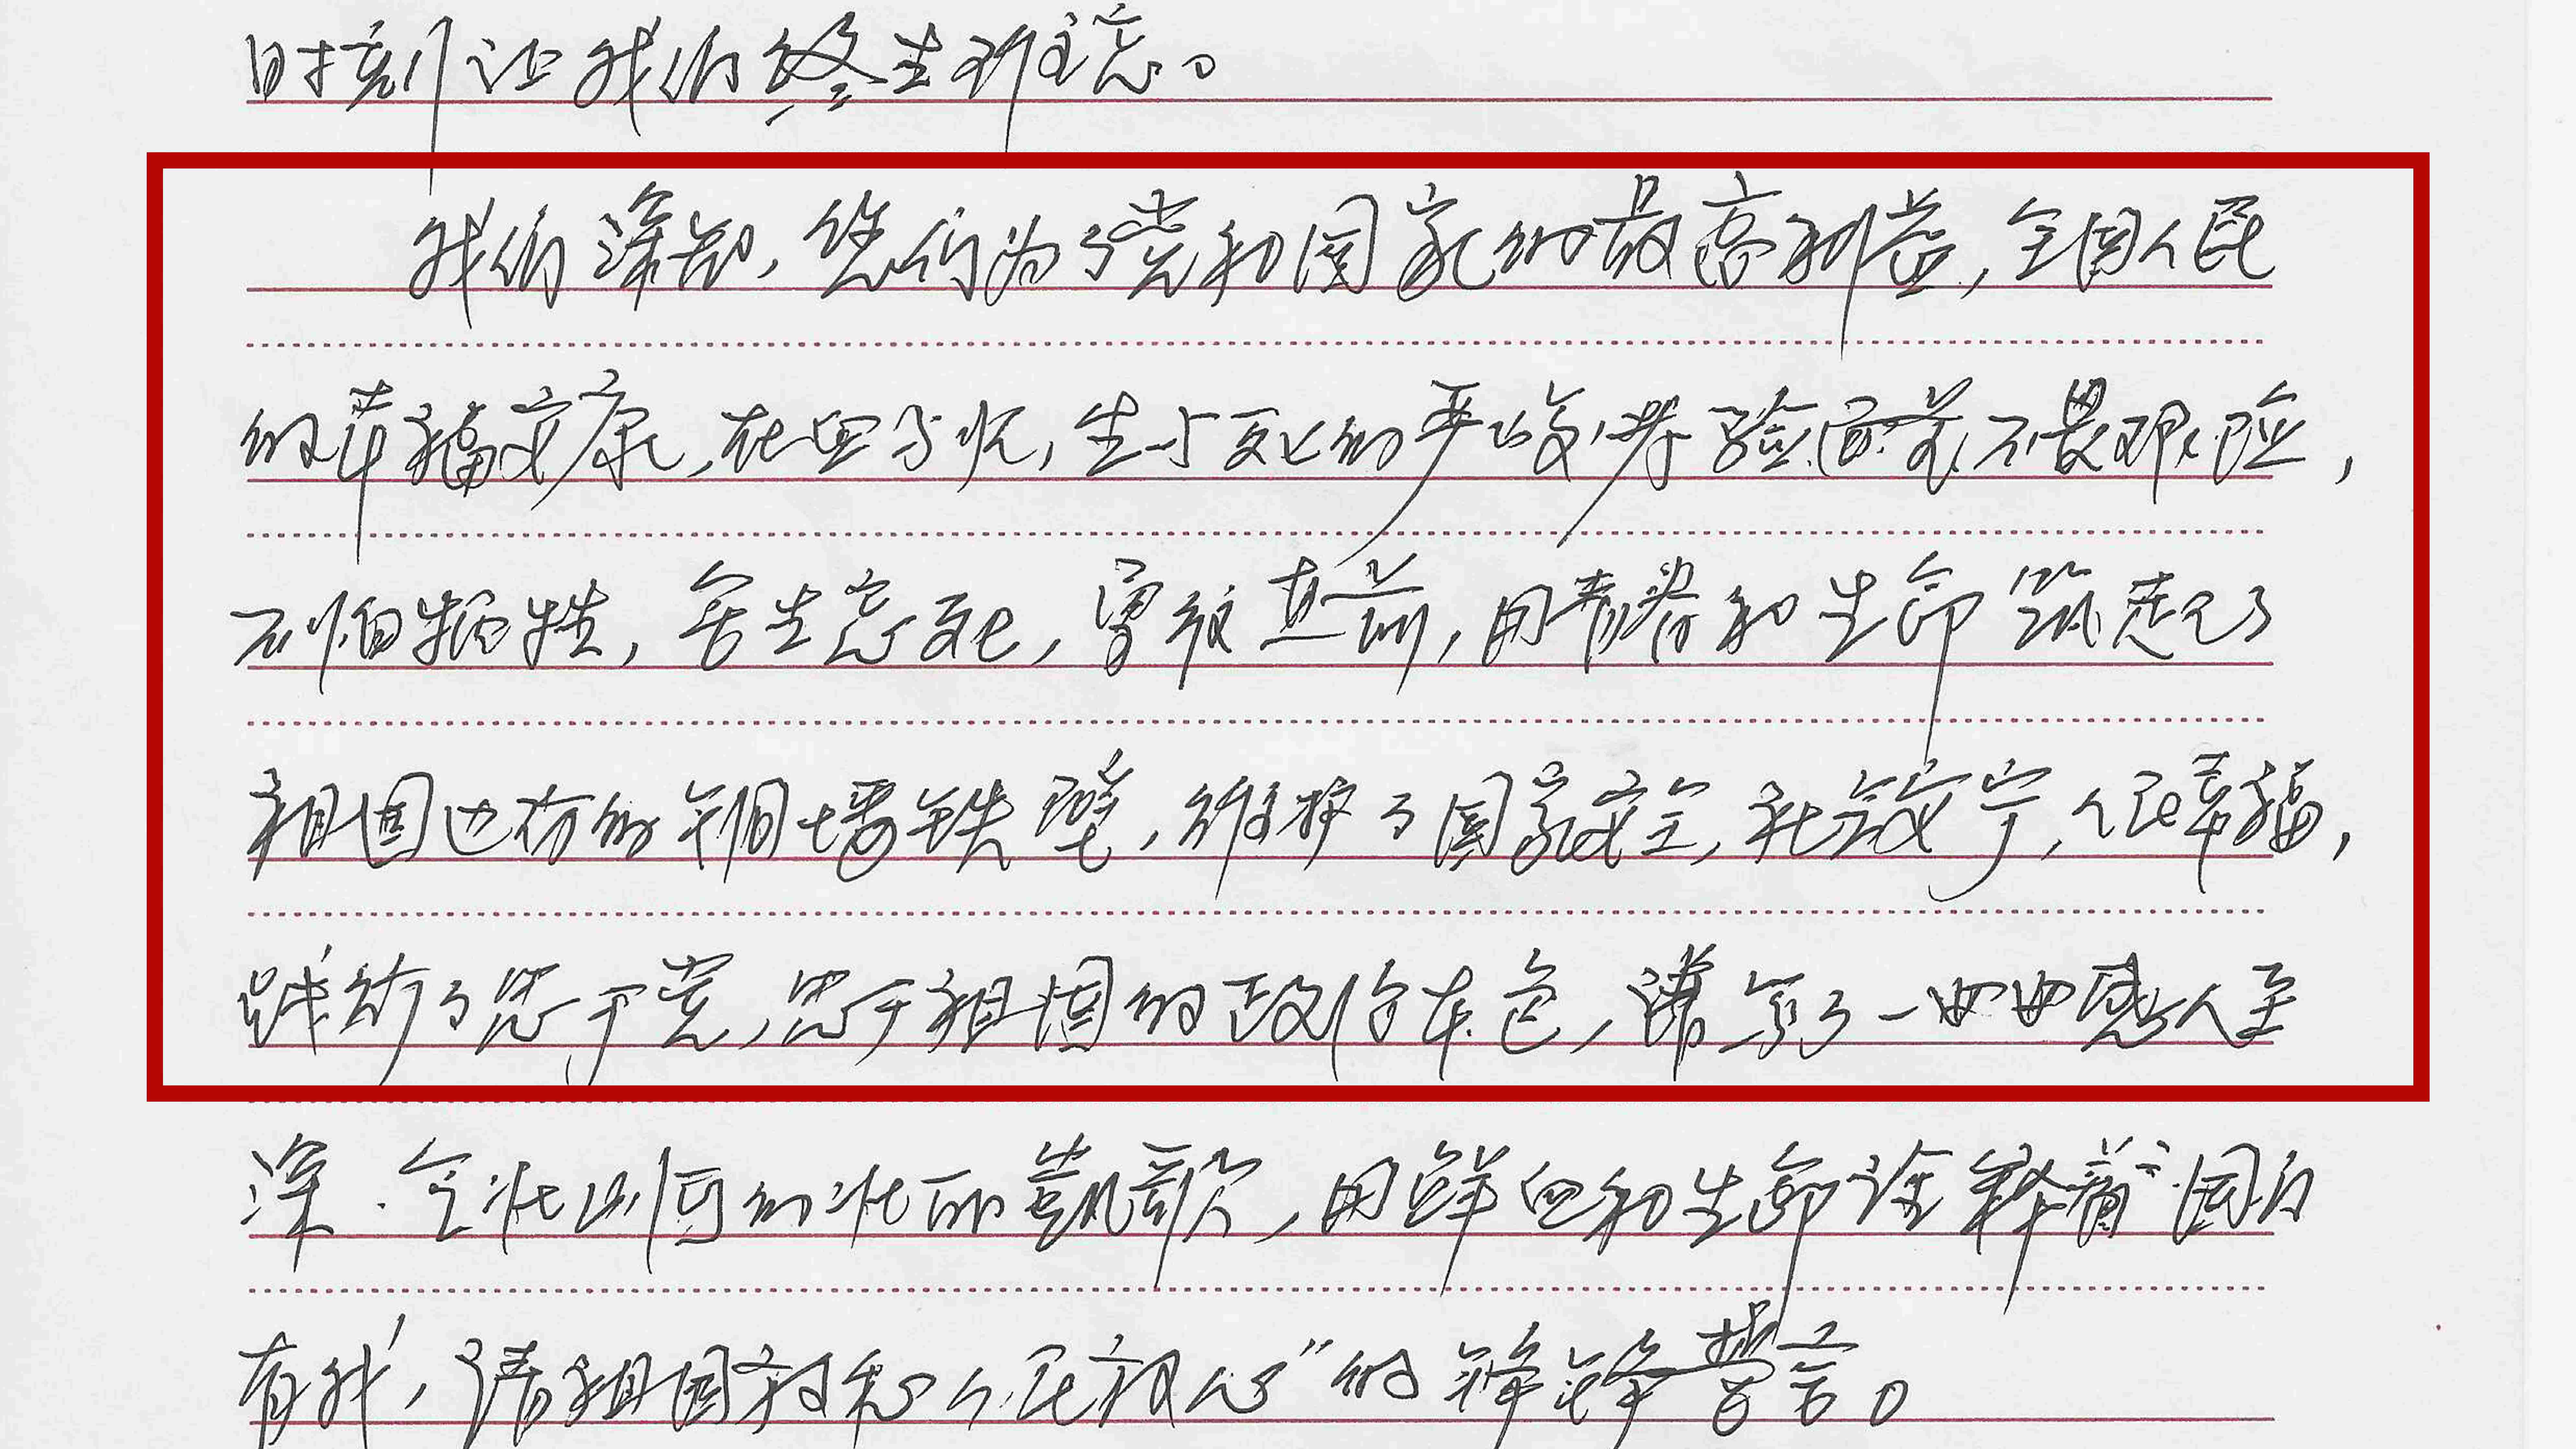 时刻让我们终生难忘。
我们深知，您们为了党和国家的最高利益，全国人民
的幸福安康，在血与火，生与死的严峻考验面前不畏艰险，
不怕牺牲，舍生忘死，勇往直前，用青春和生命筑起了
祖国边防的铜墙铁壁，维护了国家安全，社会安宁，人民幸福，
践行了忠于党，忠于祖国的政治本色，谱写了一曲曲感人至
深、气壮山河的壮丽凯歌，用鲜血和生命诠释着“国有
有我，请祖国放心人民放心”的铮铮誓言。